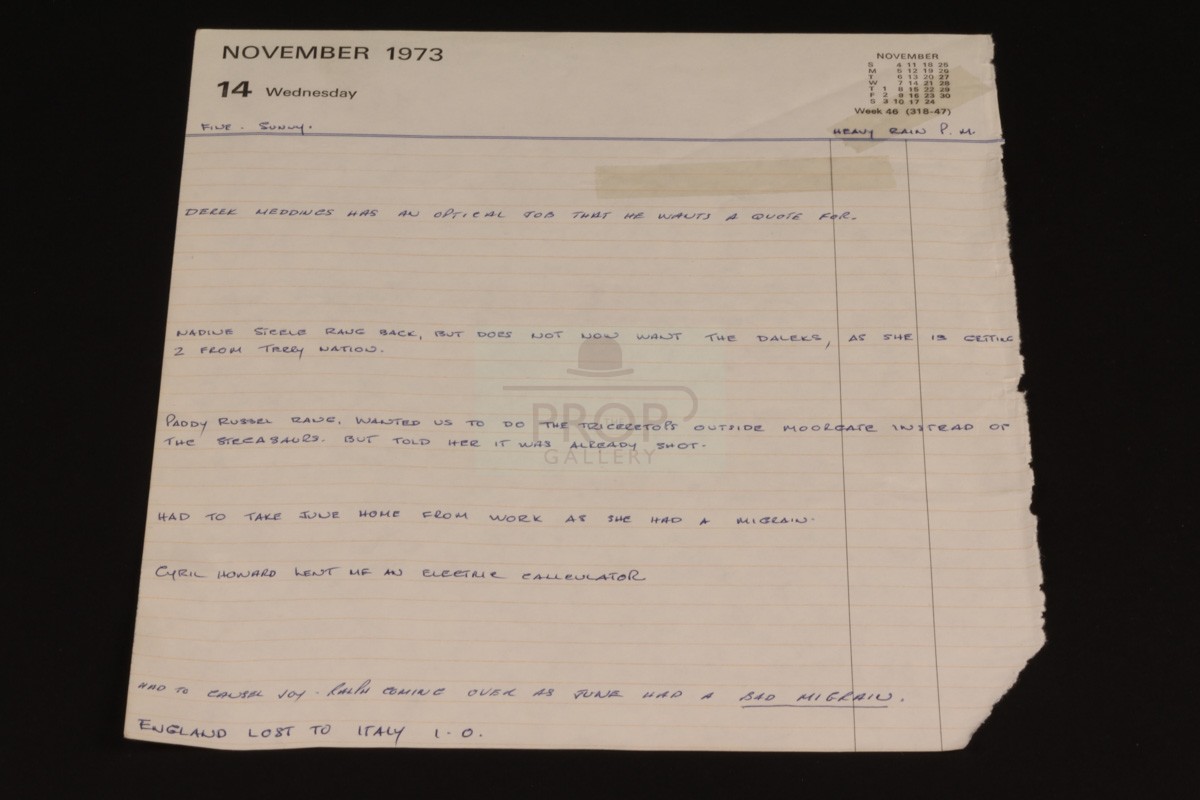 NOVEMBER 1973
14 Wednesday
NOVEMBER
S 4 11 18 25
M 5 12 19 26
T 6 13 20 27
W 7 14 21 28
T 1 8 15 22 29
F 2 9 16 23 30
S 3 10 17 24
Week 46 (318-47)
FINE. SUNNY. HEAVY RAIN P.M.
DEREK MEDDINGS HAS AN OPTICAL JOB THAT HE WANTS A QUOTE FOR.
NADINE STEELE RANG BACK, BUT DOES NOT NOW WANT THE DALEKS, AS SHE IS GETTING
2 FROM TERRY NATION.
PADDY RUSSEL RANG, WANTED US TO DO THE TRICERETOPS OUTSIDE MOORGATE INSTEAD OF
THE STEGASAURS. BUT TOLD HER IT WAS ALREADY SHOT.
HAD TO TAKE JUNE HOME FROM WORK AS SHE HAD A MIGRAIN.
CYRIL HOWARD LENT ME AN ELECTRIC CALLCULATOR
HAD TO CANSEL JOY. RALPH COMING OVER AS JUNE HAD A BAD MIGRAIN.
ENGLAND LOST TO ITALY 1-0.
THE
PROP
GALLERY